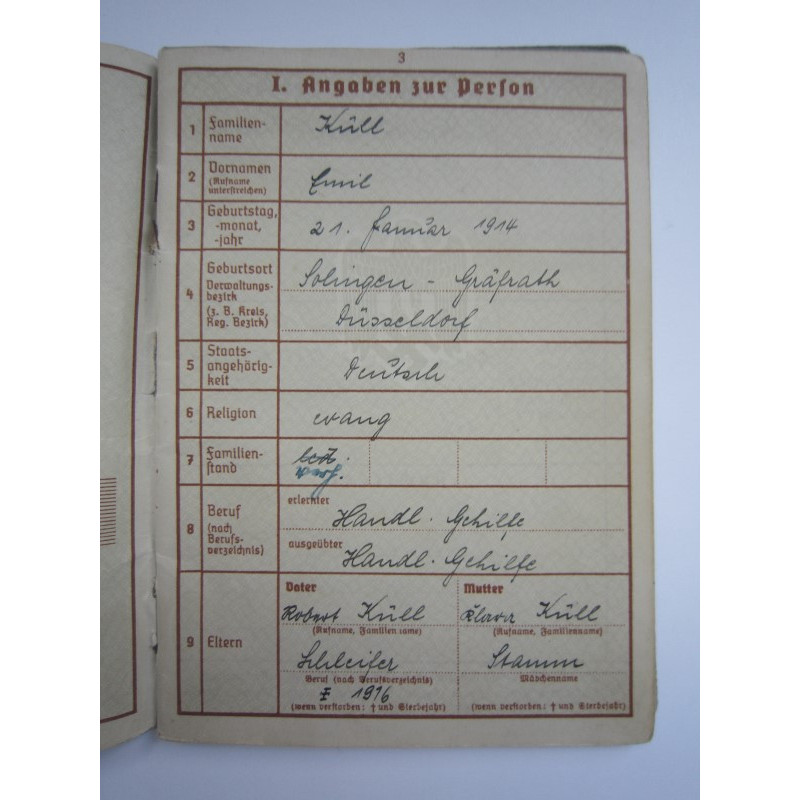 3
I. Angaben zur Person
1 Familien-
name
Küll
2 Vornamen
(Rufname
unterstreichen)
Emil
3 Geburtstag,
-monat,
-jahr
21. Januar 1914
4 Geburtsort
Verwaltungs-
bezirk
(z. B. Kreis,
Reg. Bezirk)
Solingen - Gräfrath
Düsseldorf
5 Staats-
angehörig-
keit
Deutsch
6 Religion
evang
7 Familien-
stand
led.
8 Beruf
(nach
Berufs-
verzeichnis)
erlernter
Handl. Gehilfe
ausgeübter
Handl. Gehilfe
9 Eltern
Vater
Robert Küll
(Rufname, Familienname)
Schleifer
Beruf (nach Berufsverzeichnis)
1916
(wenn verstorben: † und Sterbejahr)
Mutter
Klara Küll
(Rufname, Familienname)
Stamm
Mädchenname
(wenn verstorben: † und Sterbejahr)